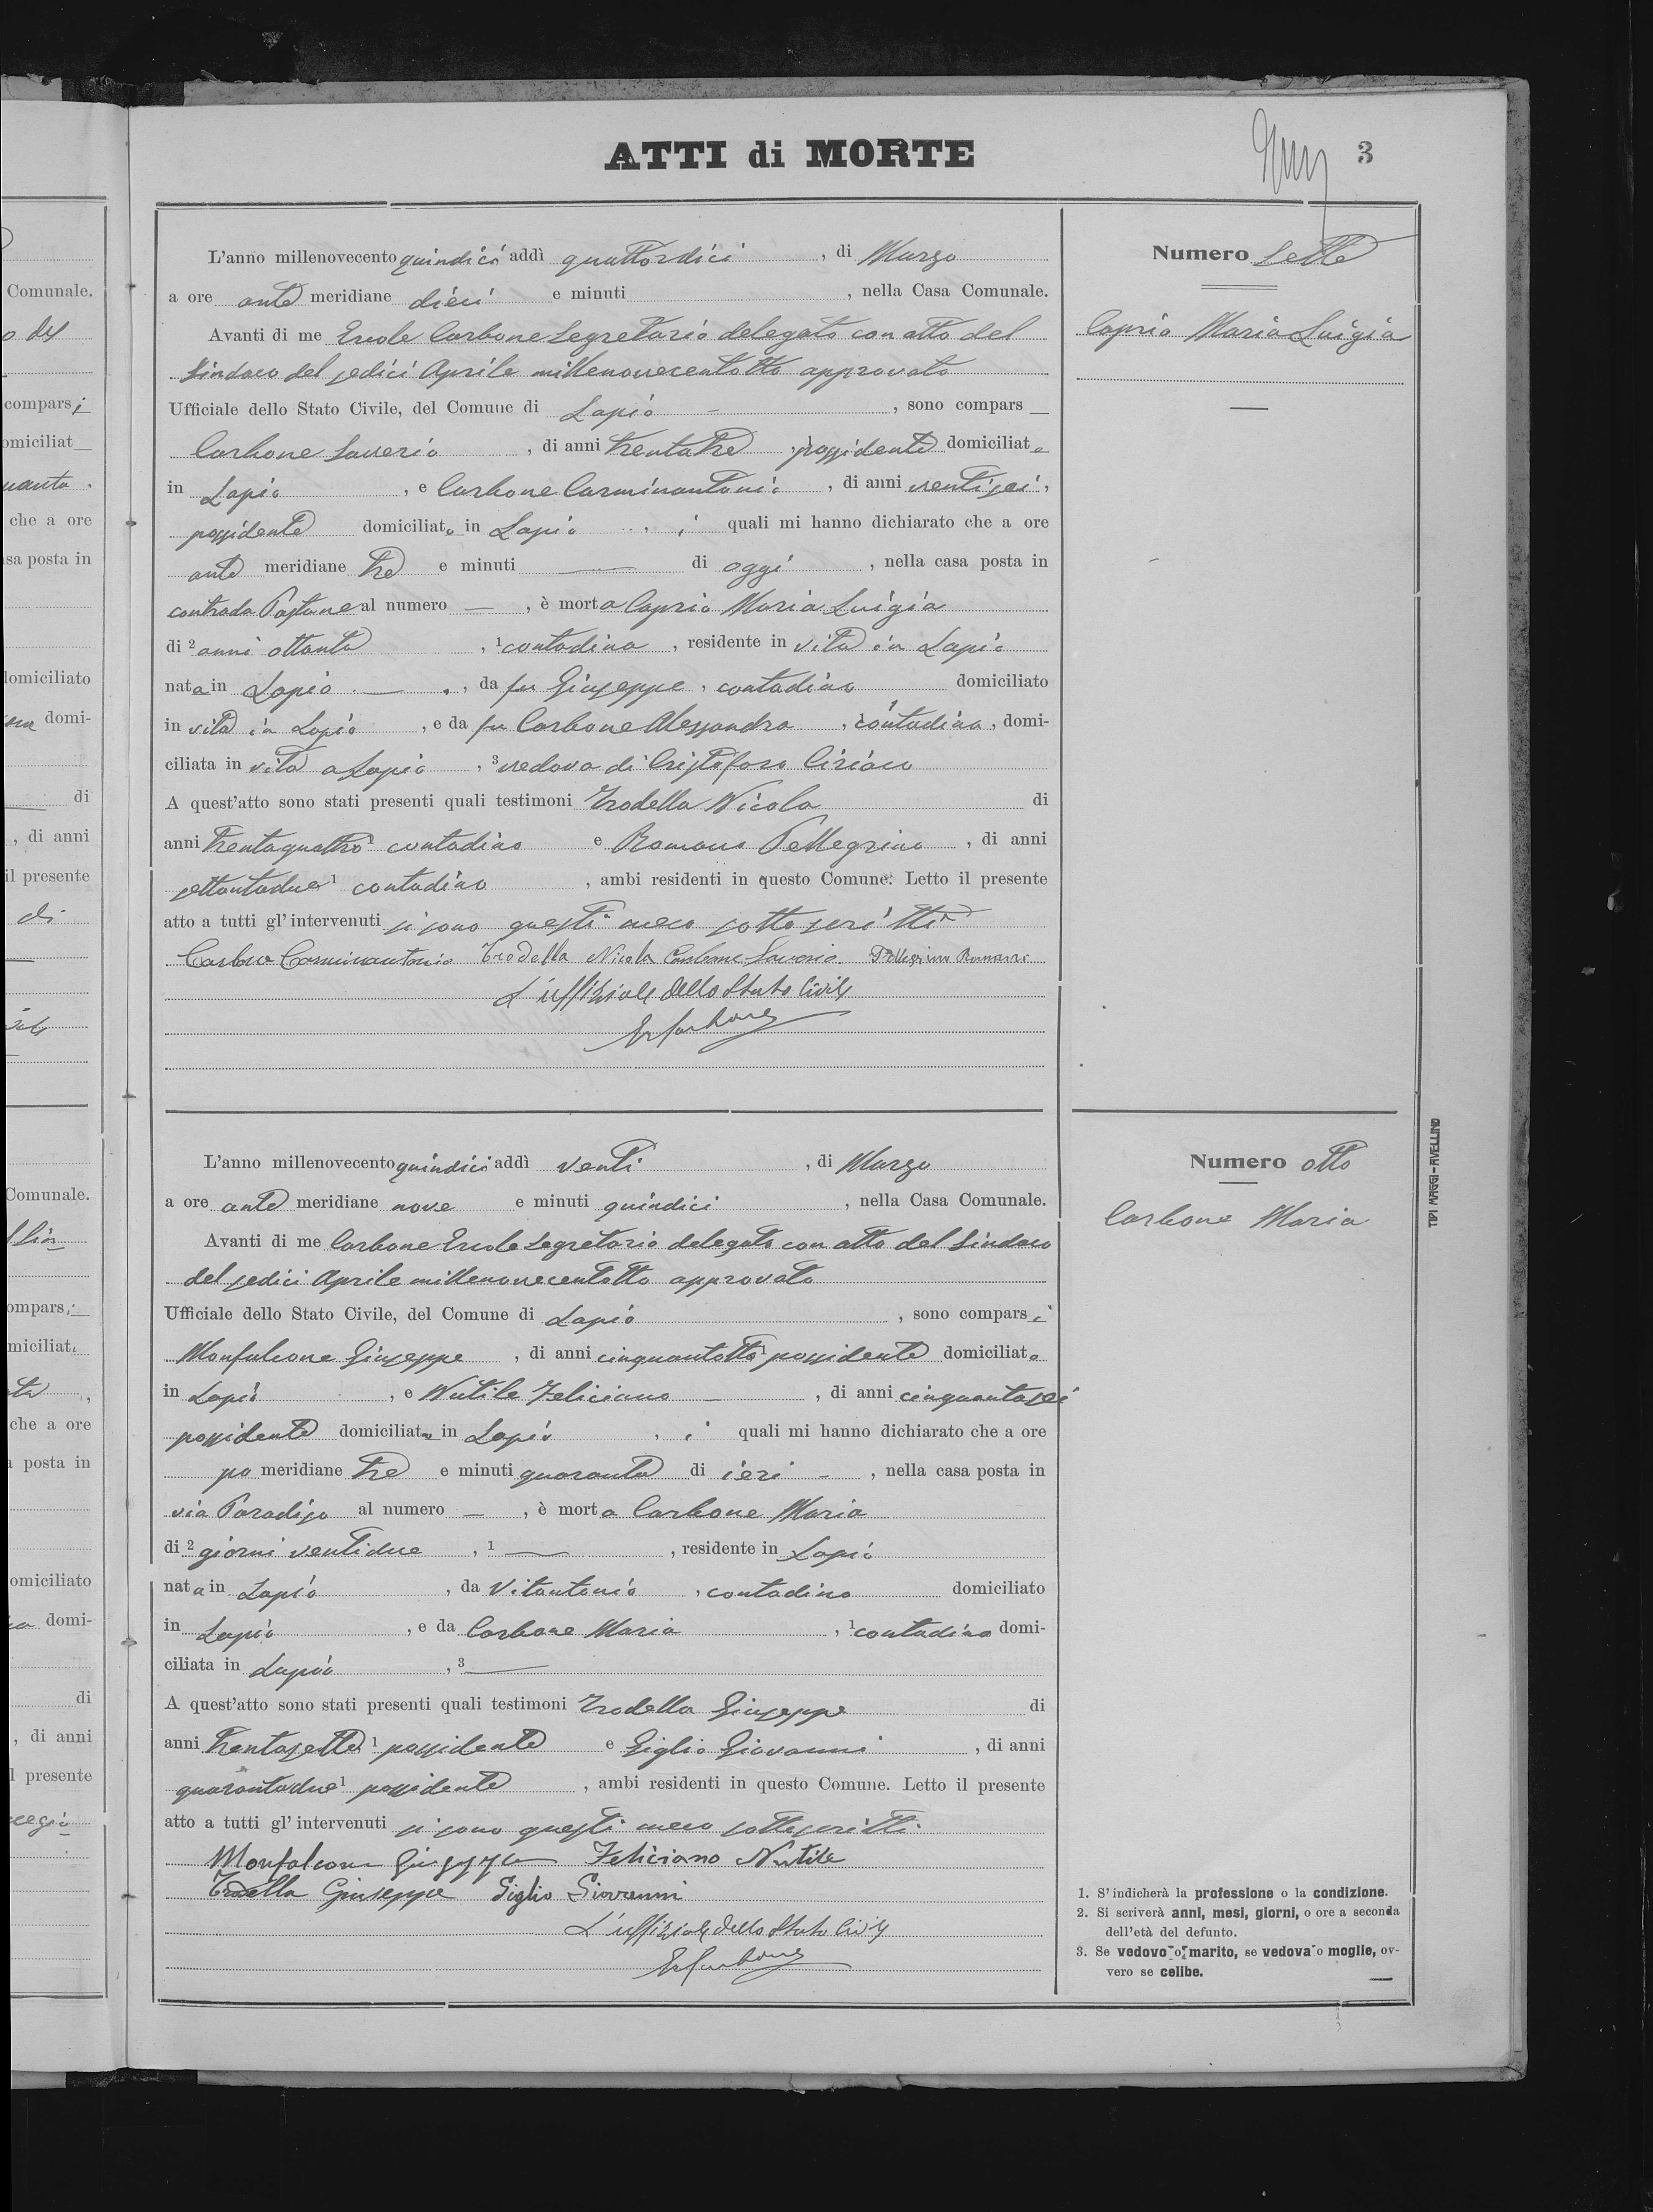 ATTI di MORTE
3
L'anno millenovecento quindici addì quattordici, di Marzo
a ore ante meridiane dieci e minuti, nella Casa Comunale.
Avanti di me Ercole Carbone Segretario delegato con atto del
Sindaco del sedici Aprile millenovecentotto approvato
Ufficiale dello Stato Civile, del Comune di Lapio -, sono compars
Carbone Saverio, di anni trentatre, possidente domiciliato
in Lapio, e Carbone Carminantonio, di anni ventisei,
possidente domiciliato in Lapio, i quali mi hanno dichiarato che a ore
ante meridiane tre e minuti — di oggi, nella casa posta in
contrada Pastane al numero —, è morta Caprio Maria Luigia
di 2 anni ottanta, 1 contadina, residente in vita in Lapio
nata in Lapio —, da fu Giuseppe, contadino domiciliato
in vita in Lapio, e da fu Carbone Alessandra, 1 contadina, domi-
ciliata in vita a Lapio, 3 vedova di Cristofaro Ciriaco
A quest'atto sono stati presenti quali testimoni Trodella Nicola di
anni trentaquattro 1 contadino e Romano Pellegrino, di anni
settantadue 1 contadino, ambi residenti in questo Comune. Letto il presente
atto a tutti gl'intervenuti si sono questi meco sottoscritti
Carbone Carminantonio Trodella Nicola Carbone Saverio Pellegrino Romano
L'uffiziale dello Stato Civile
ErCarbone
Numero sette
Caprio Maria Luigia
L'anno millenovecento quindici addì venti, di Marzo
a ore ante meridiane nove e minuti quindici, nella Casa Comunale.
Avanti di me Carbone Ercole Segretario delegato con atto del Sindaco
del sedici Aprile millenovecentotto approvato
Ufficiale dello Stato Civile, del Comune di Lapio, sono comparsi
Monfalcone Giuseppe, di anni cinquantotto 1 possidente domiciliato
in Lapio, e Nutile Feliciano —, di anni cinquantasei
possidente domiciliato in Lapio, i quali mi hanno dichiarato che a ore
po meridiane tre e minuti quaranta di ieri -, nella casa posta in
via Paradiso al numero —, è morta Carbone Maria
di 2 giorni ventidue, 1 —, residente in Lapio
nata in Lapio, da Vitantonio, contadino domiciliato
in Lapio, e da Carbone Maria, 1 contadina domi-
ciliata in Lapio, 3 —
A quest'atto sono stati presenti quali testimoni Trodella Giuseppe di
anni trentasette 1 possidente e Giglio Giovanni, di anni
quarantadue 1 possidente, ambi residenti in questo Comune. Letto il presente
atto a tutti gl'intervenuti si sono questi meco sottoscritti
Monfalcone Giuseppe Feliciano Nutile
Trodella Giuseppe Giglio Giovanni
L'uffiziale dello Stato Civile
ErCarbone
Numero otto
Carbone Maria
1. S'indicherà la professione o la condizione.
2. Si scriverà anni, mesi, giorni, o ore a seconda
dell'età del defunto.
3. Se vedovo o marito, se vedova o moglie, ov-
vero se celibe.
TIPI MAGGI - AVELLINO
Comunale.
compars i
omiciliat
uanta
che a ore
sa posta in
domiciliato
domi-
di
, di anni
il presente
di
Comunale.
ompars i
miciliat
che a ore
a posta in
omiciliato
domi-
di
, di anni
l presente